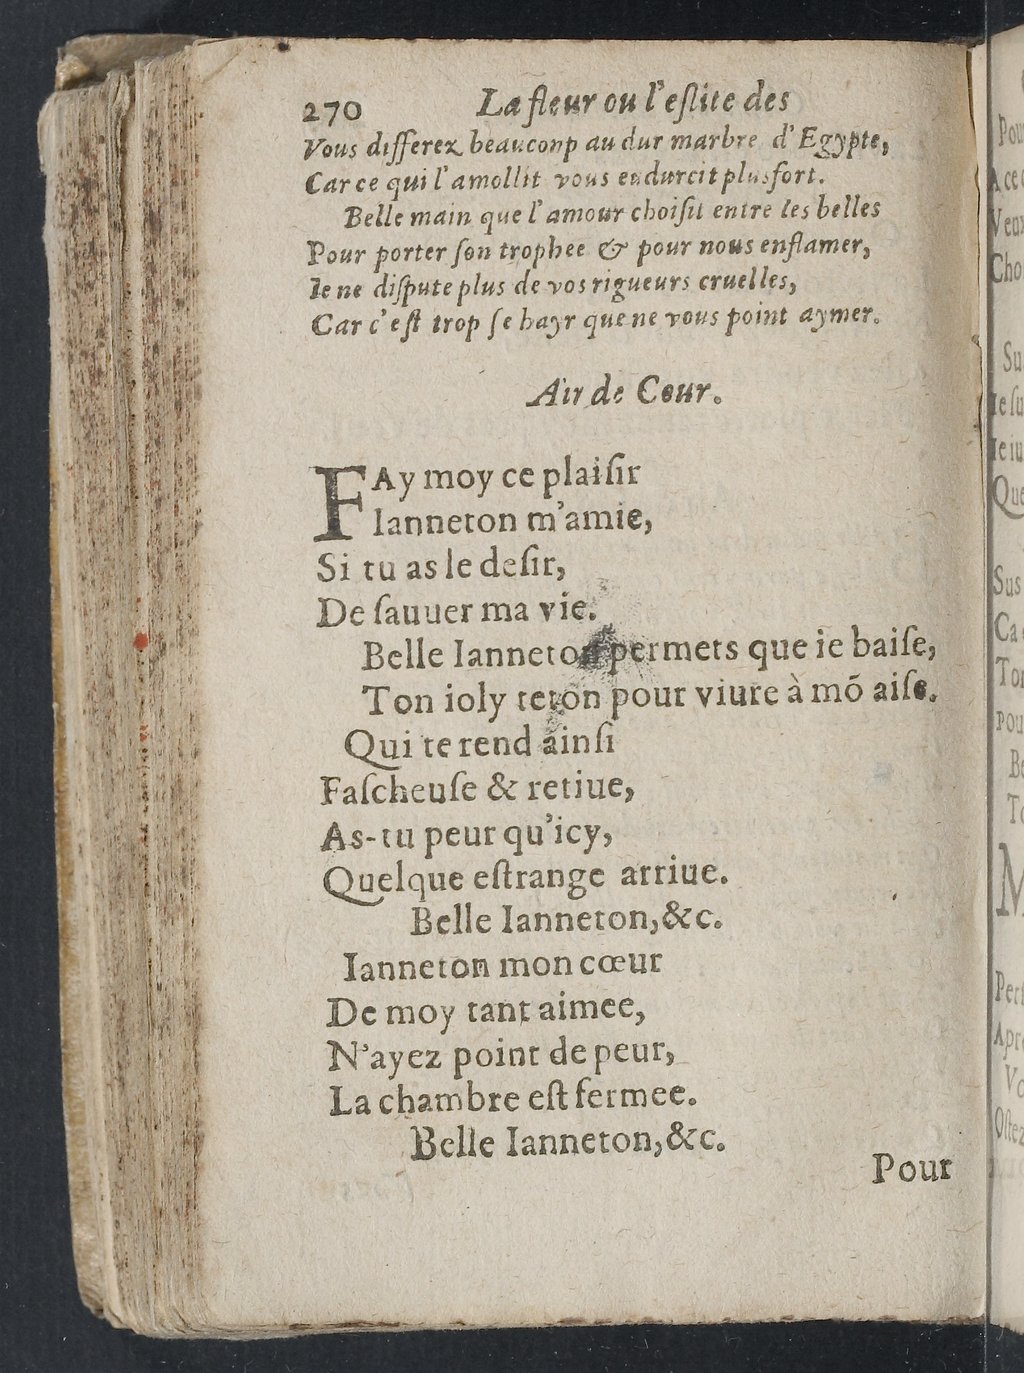 270 La fleur ou l'eſlite des
Vous differez beauconp au dur marbre d'Egypte,
Car ce qui l'amollit vous endurcit plus fort.
Belle main que l'amour choiſit entre les belles
Pour porter ſon trophee & pour nous enflamer,
Ie ne diſpute plus de vos rigueurs cruelles,
Car c'eſt trop ſe hayr que ne vous point aymer.
Air de Cour.
FAy moy ce plaiſir
Ianneton m'amie,
Si tu as le deſir,
De ſauuer ma vie.
Belle Ianneton permets que ie baiſe,
Ton ioly teton pour viure à mõ aiſe.
Qui te rend ainſi
Faſcheuſe & retiue,
As-tu peur qu'icy,
Quelque eſtrange arriue.
Belle Ianneton, &c.
Ianneton mon cœur
De moy tant aimee,
N'ayez point de peur,
La chambre eſt fermee.
Belle Ianneton, &c.
Pour